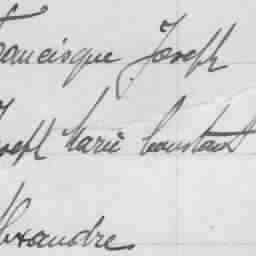 Francisque Joseph
Joseph Marie Constant
Alexandre